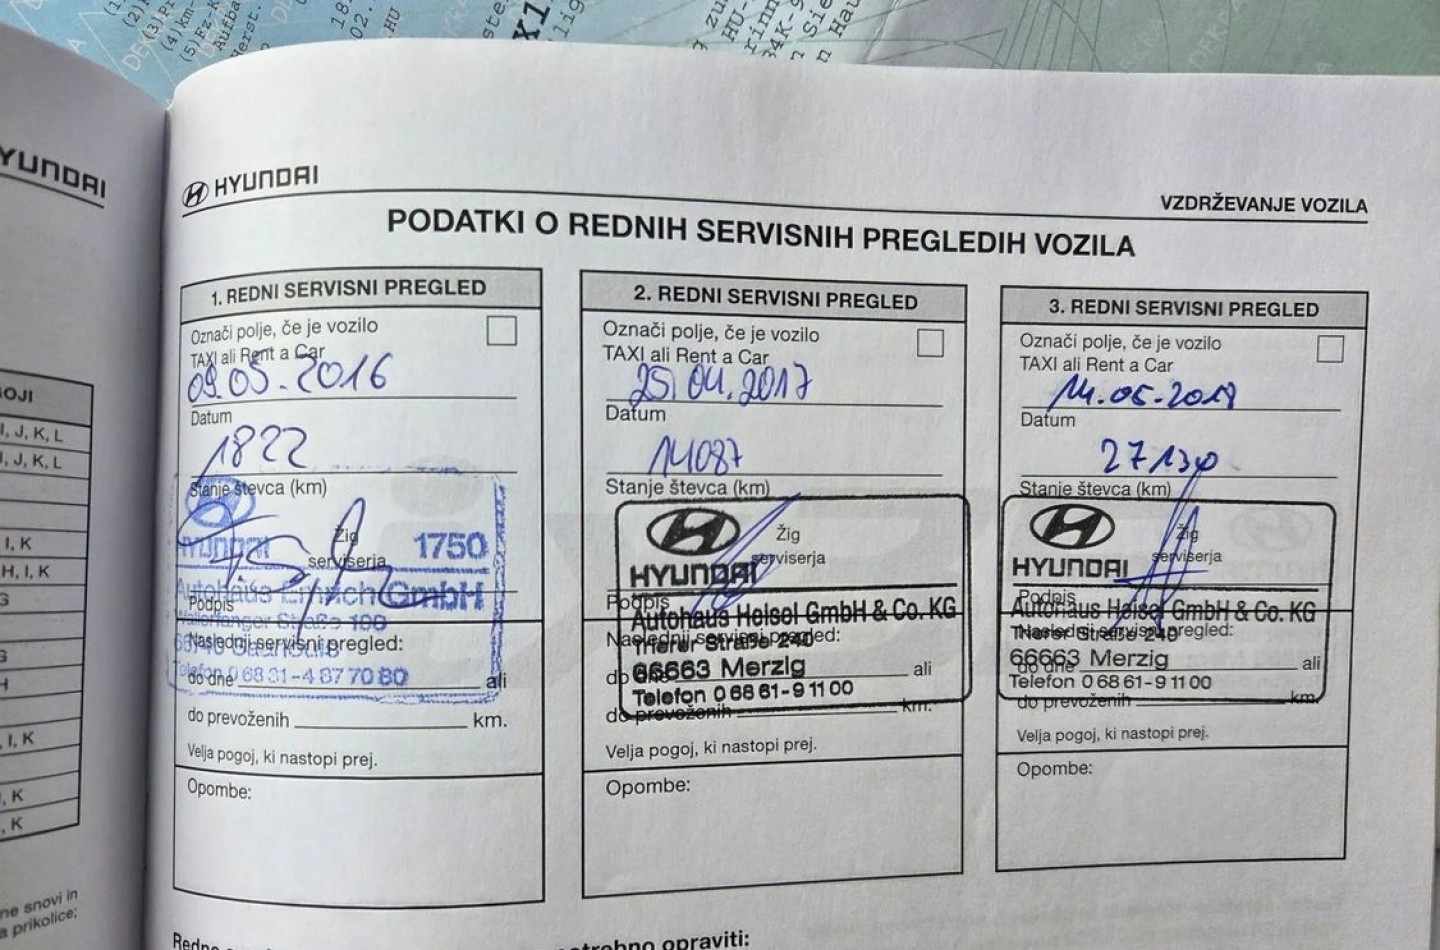 HYUNDAI
VZDRŽEVANJE VOZILA
PODATKI O REDNIH SERVISNIH PREGLEDIH VOZILA
1. REDNI SERVISNI PREGLED
Označi polje, če je vozilo
TAXI ali Rent a Car
09.05.2016
Datum
1822
Stanje števca (km)
Žig
serviserja
HYUNDAI 1750
Autohaus Emrich GmbH
Podpis
Straße 100
Naslednji servisni pregled:
Telefon 0 68 31-4 87 70 80
do dne ali
do prevoženih km.
Velja pogoj, ki nastopi prej.
Opombe:
2. REDNI SERVISNI PREGLED
Označi polje, če je vozilo
TAXI ali Rent a Car
25.04.2017
Datum
14087
Stanje števca (km)
Žig
serviserja
HYUNDAI
Podpis
Autohaus Heisel GmbH & Co. KG
Naslednji servisni pregled:
Trierer Straße 240
66663 Merzig
do dne ali
Telefon 0 68 61-9 11 00
do prevoženih km.
Velja pogoj, ki nastopi prej.
Opombe:
3. REDNI SERVISNI PREGLED
Označi polje, če je vozilo
TAXI ali Rent a Car
14.05.2018
Datum
27130
Stanje števca (km)
Žig
serviserja
HYUNDAI
Podpis
Autohaus Heisel GmbH & Co. KG
Naslednji servisni pregled:
Trierer Straße 240
66663 Merzig
ali
Telefon 0 68 61-9 11 00
do prevoženih km.
Velja pogoj, ki nastopi prej.
Opombe:
YUNDAI
OJI
I, J, K, L
I, J, K, L
I, K
H, I, K
G
G
H
I, K
K
K
ne snovi in
a prikolice;
Redno
opraviti: